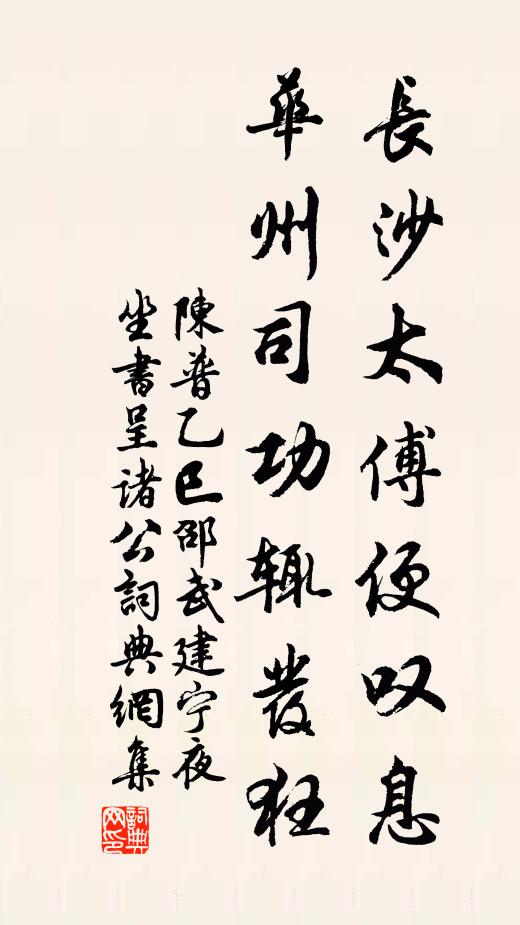 長沙太傅便叹息
華州司功辄發狂
陳普乙巳邵武建宁夜
坐書呈诸公詞典網集
詞典網印